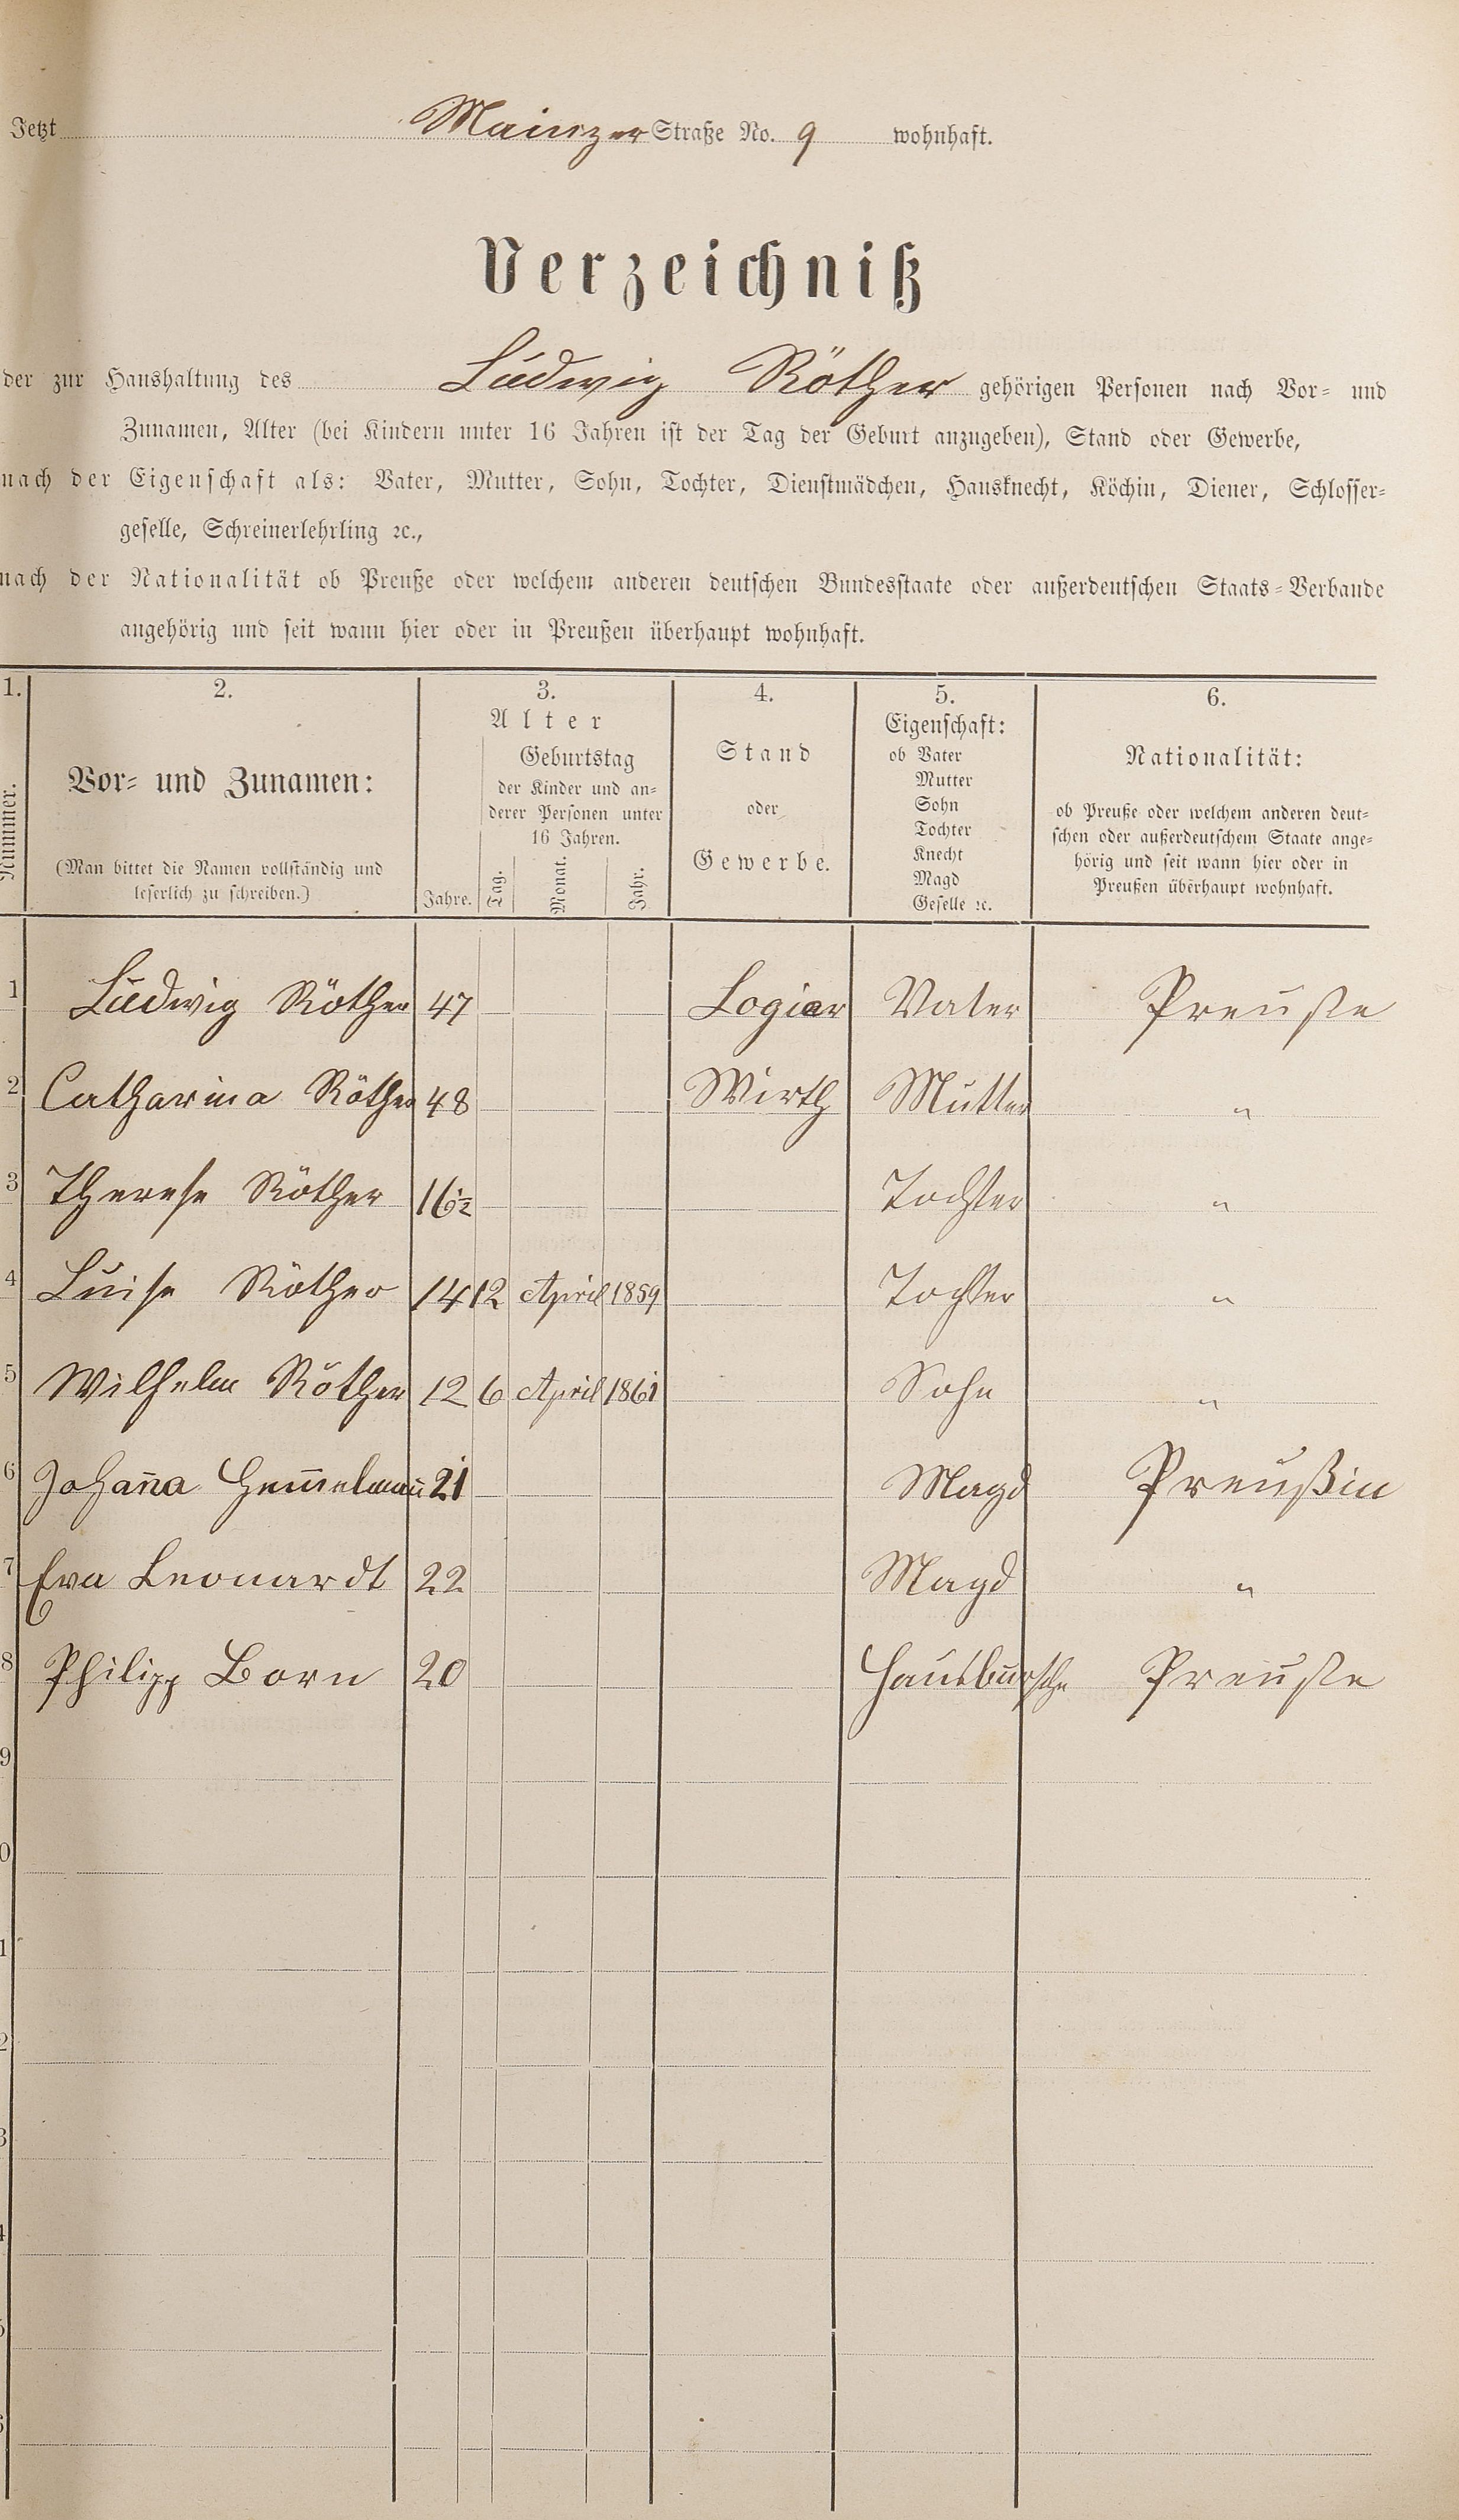 Jetzt Mainzer Straße No. 9 wohnhaft.
Verzeichniß
der zur Haushaltung des Ludwig Röther gehörigen Personen nach Vor- und
Zunamen, Alter (bei Kindern unter 16 Jahren ist der Tag der Geburt anzugeben), Stand oder Gewerbe,
nach der Eigenschaft als: Vater, Mutter, Sohn, Tochter, Dienstmädchen, Hausknecht, Köchin, Diener, Schlosser-
geselle, Schreinerlehrling ꝛc.,
nach der Nationalität ob Preuße oder welchem anderen deutschen Bundesstaate oder außerdeutschen Staats-Verbande
angehörig und seit wann hier oder in Preußen überhaupt wohnhaft.
1.
Nummer.
2.
Vor- und Zunamen:
(Man bittet die Namen vollständig und
leserlich zu schreiben.)
3.
Alter
Jahre.
Geburtstag
der Kinder und an-
derer Personen unter
16 Jahren.
Tag. Monat. Jahr.
4.
Stand
oder
Gewerbe.
5.
Eigenschaft:
ob Vater
Mutter
Sohn
Tochter
Knecht
Magd
Geselle ꝛc.
6.
Nationalität:
ob Preuße oder welchem anderen deut-
schen oder außerdeutschem Staate ange-
hörig und seit wann hier oder in
Preußen überhaupt wohnhaft.
1 Ludwig Röther 47 Logier Vater Preuße
2 Catharina Röther 48 Wirth Mutter "
3 Therese Röther 16½ Tochter "
4 Luise Röther 14 12 April 1859 Tochter "
5 Wilhelm Röther 12 6 April 1861 Sohn "
6 Johan̅a 21 Magd Preußin
7 Eva Leonardt 22 Magd "
8 Philipp Born 20 Hausbursche Preuße
9
0
1
2
3
4
5
6